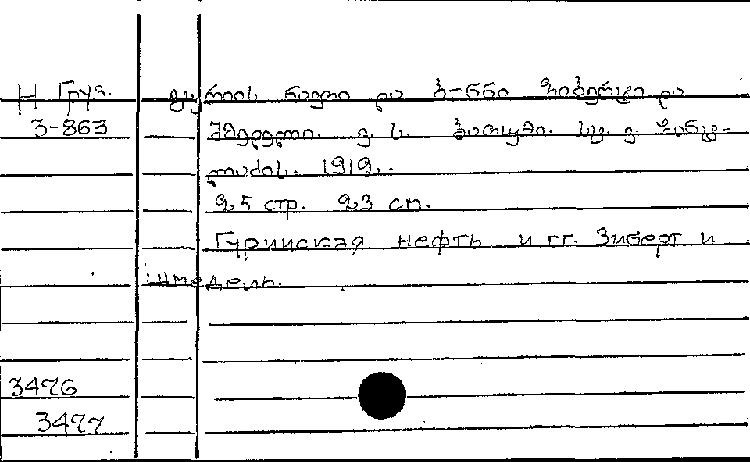 Н Груз. გურიის ნავთი და ბ-ნნი ზიბერტი და
3-863 შმედელი. ქ. ს. ბათუმი. სტ. გ.
1919.
25 стр. 23 см.
Гурийская нефть и гг. Зиберт и
Шмедель.
3476
3477